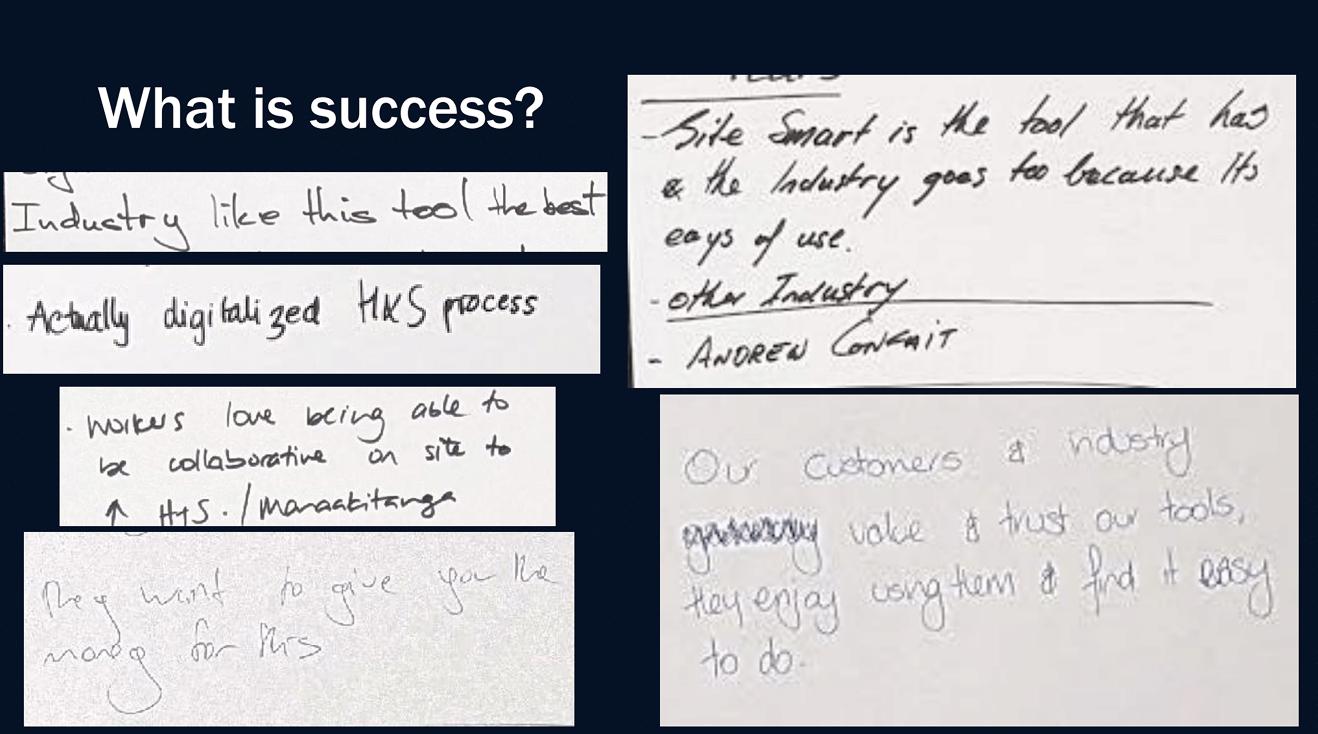 What is success?
Industry like this tool the best
Actually digitalized H&S process
. Workers love being able to
be collaborative on site to
↑ H+S. / Manaakitanga
They want to give you the
money for this
- Site Smart is the tool that has
& the Industry goes too because Its
eays of use.
- other Industry
- ANDREW
Our customers & industry
value & trust our tools,
they enjoy using them & find it easy
to do.